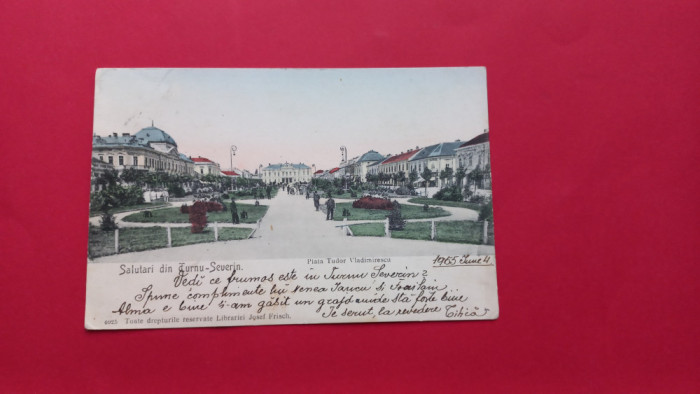 Piata Tudor Vladimirescu
Salutari din Turnu-Severin.
1905 June 4
Vedi ce frumos este în Turnu Severin?
Spune complimente lui nenea Iancu și
Alma e bine ți-am găsit un unde stă foarte bine
Te sărut, la revedere
Toate drepturile reservate Librariei Josef Frisch.